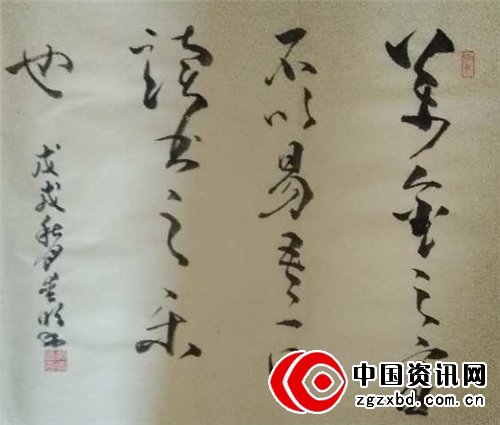 萬金之富
不以易吾一日
讀書之樂
也
戊戌秋月
中国资讯网
zgzxbd.com.cn